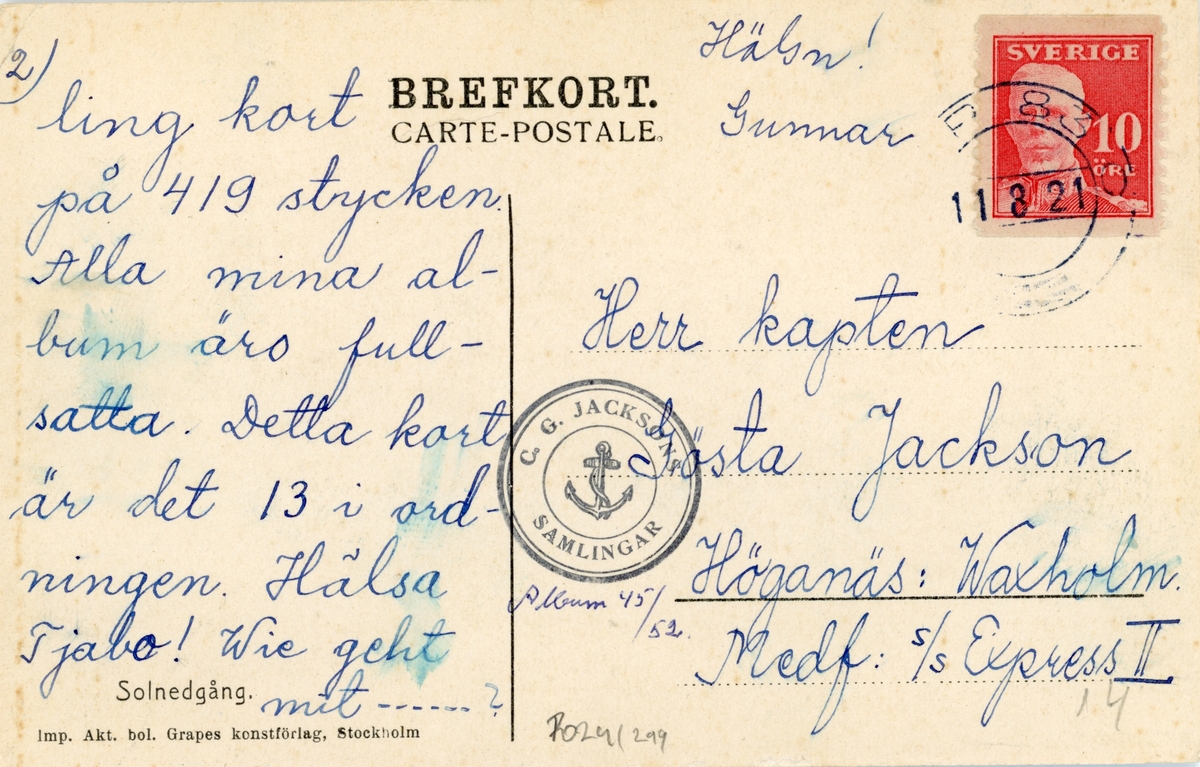 2)
ling kort
på 419 stycken.
Alla mina al-
bum äro full-
satta. Detta kort
är det 13 i ord-
ningen. Hälsa
Tjabo! Wie geht
mit ------?
Hälsn!
Gunnar
BREFKORT.
CARTE-POSTALE.
SVERIGE
10
ÖRE
11 8 21
Herr kapten
Gösta Jackson
Höganäs: Waxholm.
Medf: s/s Express II
C. G. JACKSONS
SAMLINGAR
Album 45/
52.
Solnedgång.
Imp. Akt. bol. Grapes konstförlag, Stockholm
14